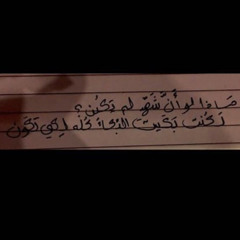 ماذا لو أنَّ شهر لم تكن؟
لكنت بكيت البكاء كله لكي تكون